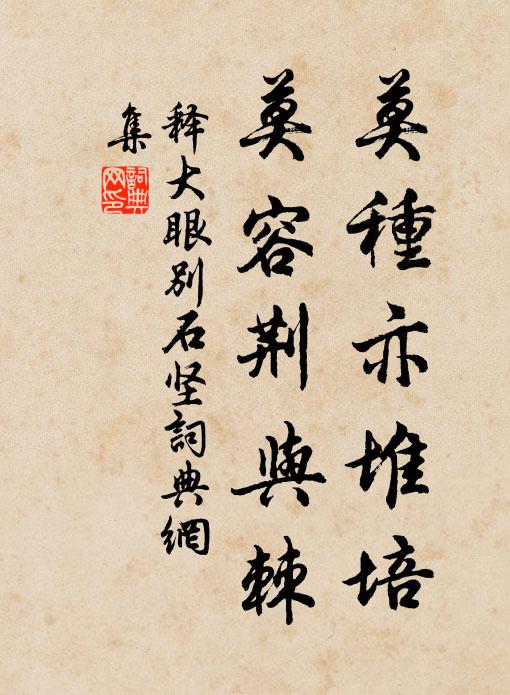 莫種亦堆培
莫容荆與棘
释大眼别石坚詞典網
集
詞典
网印